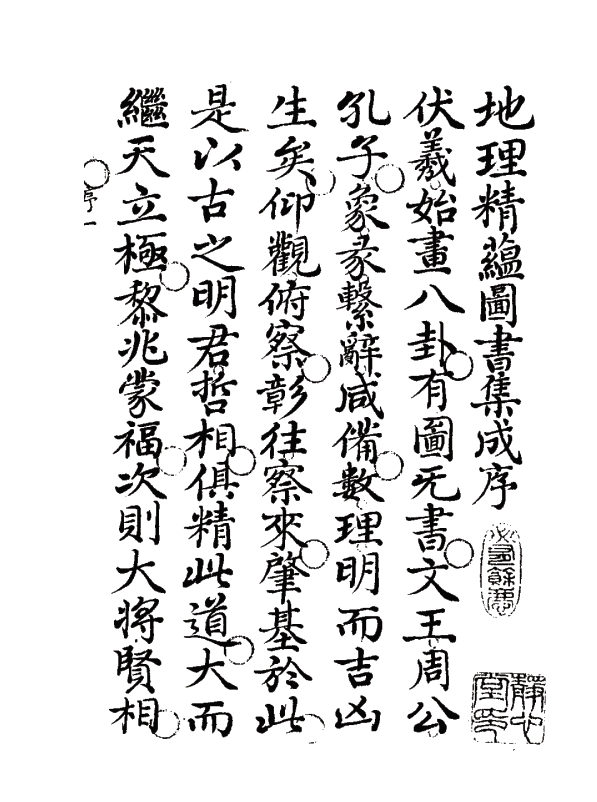 地理精蘊圖書集成序
伏羲始畫八卦有圖旡書文王周公
孔子象彖繫辭咸備數理明而吉凶
生矣仰觀俯察彰往察來肇基於此
是以古之明君哲相俱精此道大而
繼天立極黎兆蒙福次則大將賢相
序一